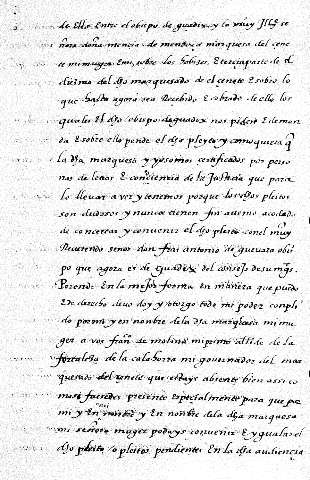 de Ello Entre el obispo de guadix y la muy Ille se
ñora doña mencia de mendoça marquesa del cene
te mi muger sobre los habizes E tercia parte de el
diezmo del dho marquesado de el çenete E sobre lo
que hasta agora sea Recebido E cobrado de ello los
quales El dho obispo de guadix nos pide E deman
da E sobre ello pende el dho pleyto y como quiera q
la dha marquesa y yo somos certificados por perso
nas de letras E conciencia de la Justicia que para
lo llevar a ver y tenemos porque los dhos pleitos
son dudosos y nunca tienen fin avemos acordado
de concertar y convenir el dho pleito con el muy
Reverendo señor don frai antonio de guevara obis
po que agora es de guadix del consejo de su mag.
Porende En la mejor forma en manera que puedo
E de derecho devo doy y otorgo todo mi poder conpli
do por mi y en nonbre de la dha marquesa mi mu
ger a vos fran.co de molina mi primo alcaide de la
fortaleza de la calahorra mi governador del mar
quesado del cenete que estays absente bien assi co
mo si fuesedes presente especialmente para que po
mi y En nonbre de la dha marquesa
mi señora muger podays convenir E ygualar el
dho pleito o pleitos pendientes En la dha audiencia